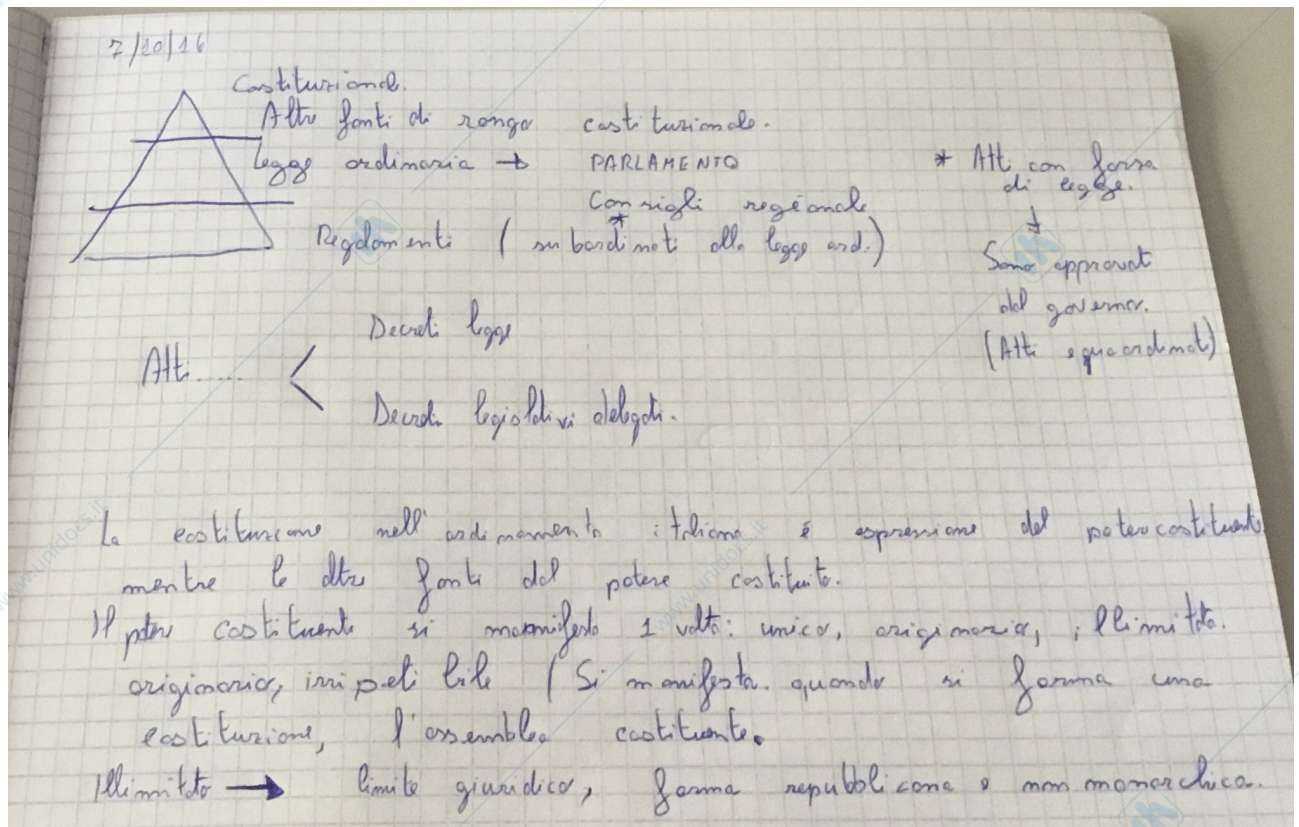 7/10/16
Costituzionale.
Altre fonti di rango costituzionale.
legge ordinaria → PARLAMENTO
Consigli regionale
*
Regolamenti (subordinati alla legge ord.)
* Atti con forza
di legge.
↓
Sono approvati
dal governo.
(Atti equiordinati)
Decreti legge
Atti..... <
Decreti legislativi delegati.
La costituzione nell'ordinamento italiano è espressione del potere costituente
mentre le altre fonti dal potere costituito.
Il potere costituente si manifesta 1 volta: unico, originario, illimitato.
originario, irripetibile (Si manifesta. quando si forma una
costituzione, l'assemblea costituente.
Illimitato → limite giuridico, forma repubblicana e non monarchica.
www.unidocs.it
www.unidocs.it